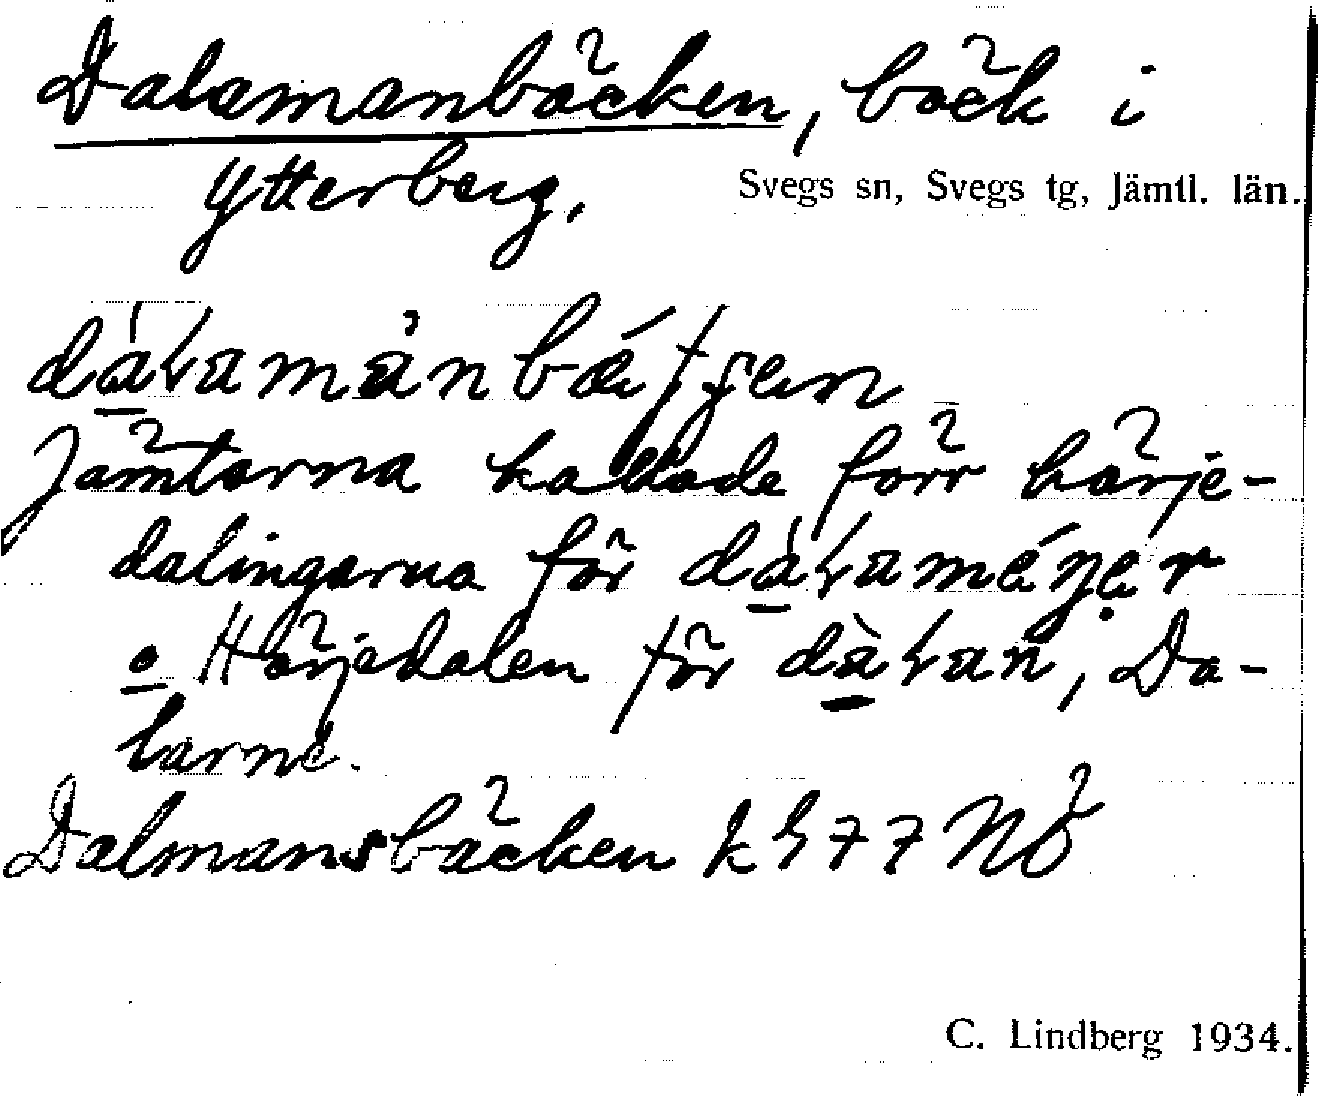 Dalamanbäcken, bäck i
Ytterberg.
Svegs sn, Svegs tg, Jämtl. län.
Jämtarna kallade förr härje-
dalingarna för
o Härjedalen för Da-
larne.
Dalmansbäcken k 977 NÖ
C. Lindberg 1934.